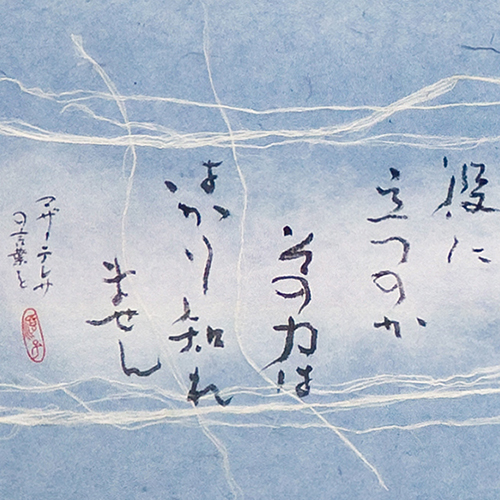 役に
立つのか
その力は
はかり知れ
ません
マザーテレサ
の言葉を